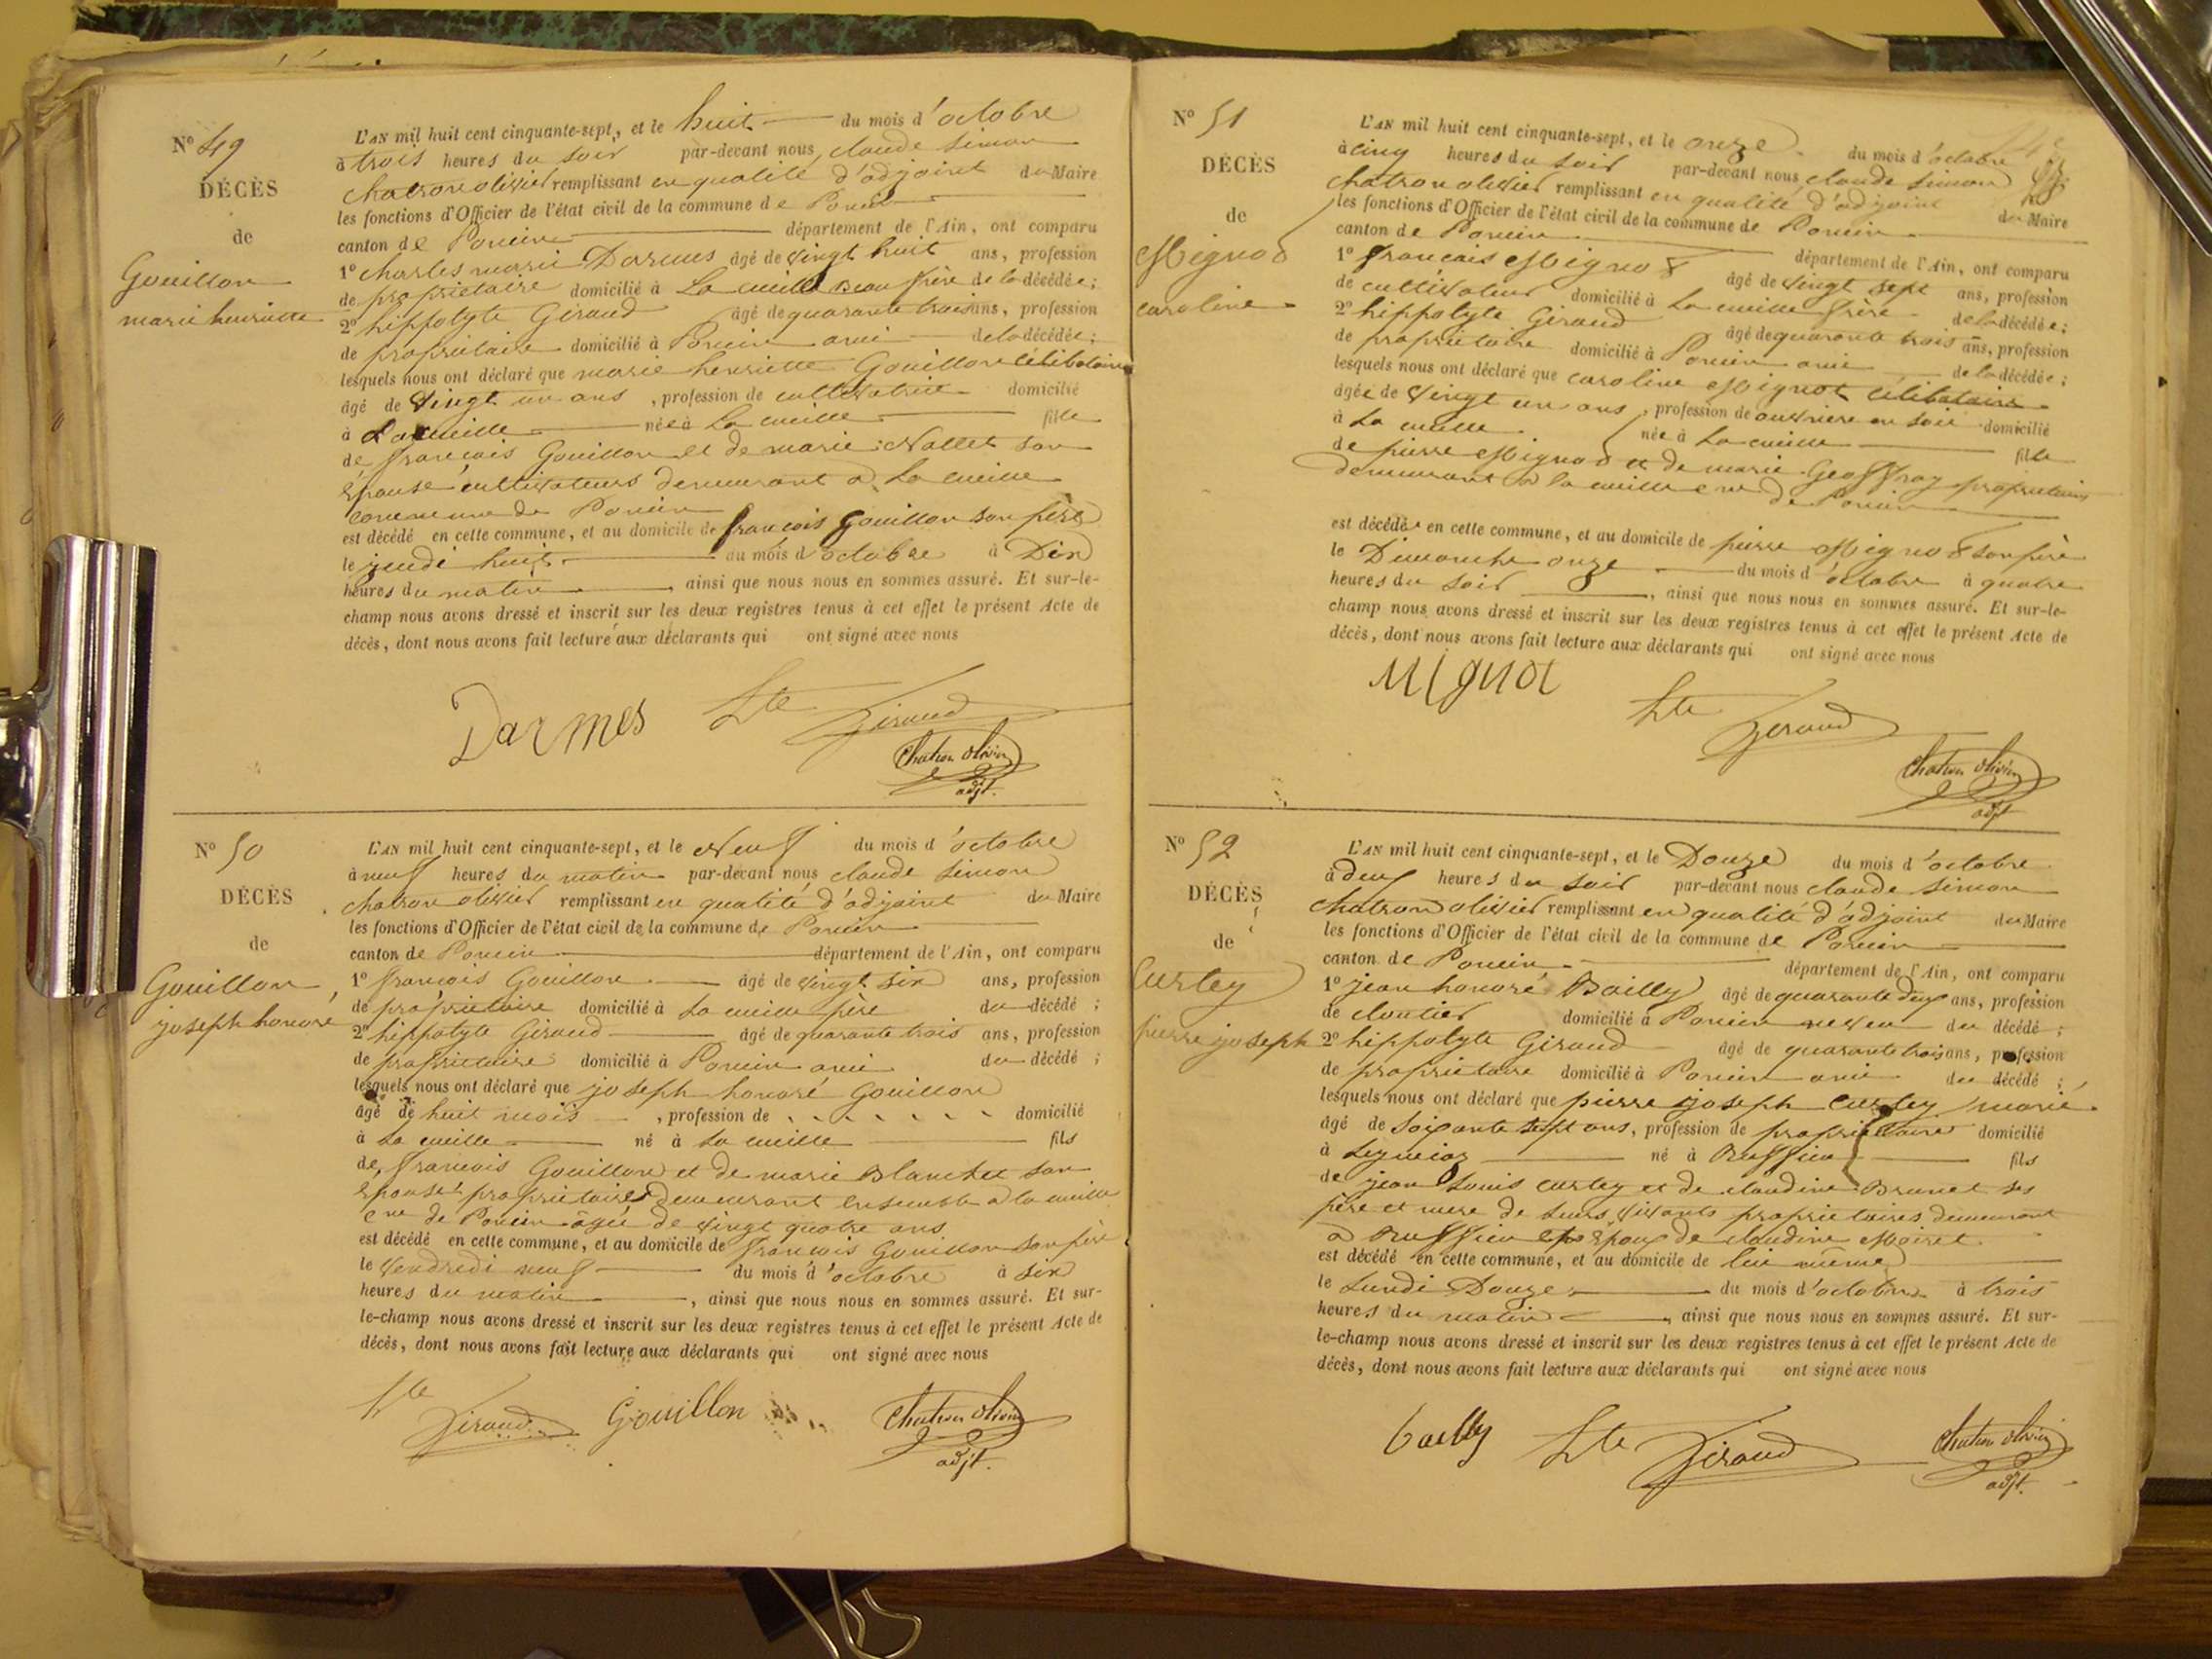 N° 49
DÉCÈS
de
Gouillon
marie henriette
L'AN mil huit cent cinquante-sept, et le huit du mois d'octobre
à trois heures du soir par-devant nous claude simon
chatron olivier remplissant en qualité d'adjoint du Maire
les fonctions d'Officier de l'état civil de la commune de Poncin
canton de Poncin département de l'Ain, ont comparu
1° charles marie Darmes âgé de vingt huit ans, profession
de propriétaire domicilié à La cueille Beau frère de la décédée;
2° hippolyte Giraud âgé de quarante trois ans, profession
de propriétaire domicilié à Poncin ami de la décédée;
lesquels nous ont déclaré que marie henriette Gouillon célibataire
âgé de vingt un ans, profession de cultivatrice domicilié
à La cueille née à La cueille fille
de françois Gouillon et de marie Nallet son
épouse cultivateurs demeurant à La cueille
commune de Poncin
est décédé en cette commune, et au domicile de françois Gouillon son père
le jeudi huit du mois d'octobre à Dix
heures du matin, ainsi que nous nous en sommes assuré. Et sur-le-
champ nous avons dressé et inscrit sur les deux registres tenus à cet effet le présent Acte de
décès, dont nous avons fait lecture aux déclarants qui ont signé avec nous
Darmes Hte Giraud
Chatron Olivier
adjt.
N° 50
DÉCÈS
de
Gouillon
joseph honoré
L'AN mil huit cent cinquante-sept, et le Neuf du mois d'octobre
à neuf heures du matin par-devant nous claude simon
chatron olivier remplissant en qualité d'adjoint du Maire
les fonctions d'Officier de l'état civil de la commune de Poncin
canton de Poncin département de l'Ain, ont comparu
1° françois Gouillon âgé de vingt six ans, profession
de propriétaire domicilié à La cueille père du décédé;
2° hippolyte Giraud âgé de quarante trois ans, profession
de propriétaire domicilié à Poncin ami du décédé;
lesquels nous ont déclaré que joseph honoré Gouillon
âgé de huit mois, profession de domicilié
à La cueille né à La cueille fils
de françois Gouillon et de marie Blanchet son
épouse propriétaires demeurant ensemble à la cueille
cne de Poncin âgée de vingt quatre ans
est décédé en cette commune, et au domicile de françois Gouillon son père
le vendredi neuf du mois d'octobre à six
heures du matin, ainsi que nous nous en sommes assuré. Et sur-
le-champ nous avons dressé et inscrit sur les deux registres tenus à cet effet le présent Acte de
décès, dont nous avons fait lecture aux déclarants qui ont signé avec nous
Hte Giraud Gouillon Chatron Olivier
adjt.
N° 51
DÉCÈS
de
Mignot
caroline
L'AN mil huit cent cinquante-sept, et le onze du mois d'octobre
à cinq heures du soir par-devant nous claude simon
chatron olivier remplissant en qualité d'adjoint du Maire
les fonctions d'Officier de l'état civil de la commune de Poncin
canton de Poncin département de l'Ain, ont comparu
1° françois Mignot âgé de vingt sept ans, profession
de cultivateur domicilié à La cueille frère de la décédée;
2° hippolyte Giraud âgé de quarante trois ans, profession
de propriétaire domicilié à Poncin ami de la décédée;
lesquels nous ont déclaré que caroline Mignot célibataire
âgée de vingt un ans, profession de ouvrière en soie domicilié
à La cueille née à La cueille fille
de pierre Mignot et de marie Geoffray propriétaires
demeurant à la cueille cne de Poncin
est décédée en cette commune, et au domicile de pierre Mignot son père
le Dimanche onze du mois d'octobre à quatre
heures du soir, ainsi que nous nous en sommes assuré. Et sur-le-
champ nous avons dressé et inscrit sur les deux registres tenus à cet effet le présent Acte de
décès, dont nous avons fait lecture aux déclarants qui ont signé avec nous
Mignot Hte Giraud
Chatron Olivier
adjt
N° 52
DÉCÈS
de
Curtey
pierre joseph
L'AN mil huit cent cinquante-sept, et le Douze du mois d'octobre
à deux heures du soir par-devant nous claude simon
chatron olivier remplissant en qualité d'adjoint du Maire
les fonctions d'Officier de l'état civil de la commune de Poncin
canton de Poncin département de l'Ain, ont comparu
1° jean honoré Bailly âgé de quarante deux ans, profession
de cloutier domicilié à Poncin neveu du décédé;
2° hippolyte Giraud âgé de quarante trois ans, profession
de propriétaire domicilié à Poncin ami du décédé;
lesquels nous ont déclaré que pierre joseph Curtey marié
âgé de soixante sept ans, profession de propriétaire domicilié
à né à Ruffieu fils
de jean Louis curtey et de claudine Brunet ses
père et mère de leurs vivants propriétaires demeurant
à Ruffieu époux de claudine Moiret
est décédé en cette commune, et au domicile de lui même
le Lundi Douze du mois d'octobre à trois
heures du matin, ainsi que nous nous en sommes assuré. Et sur-
le-champ nous avons dressé et inscrit sur les deux registres tenus à cet effet le présent Acte de
décès, dont nous avons fait lecture aux déclarants qui ont signé avec nous
bailly Hte Giraud Chatron Olivier
adjt.